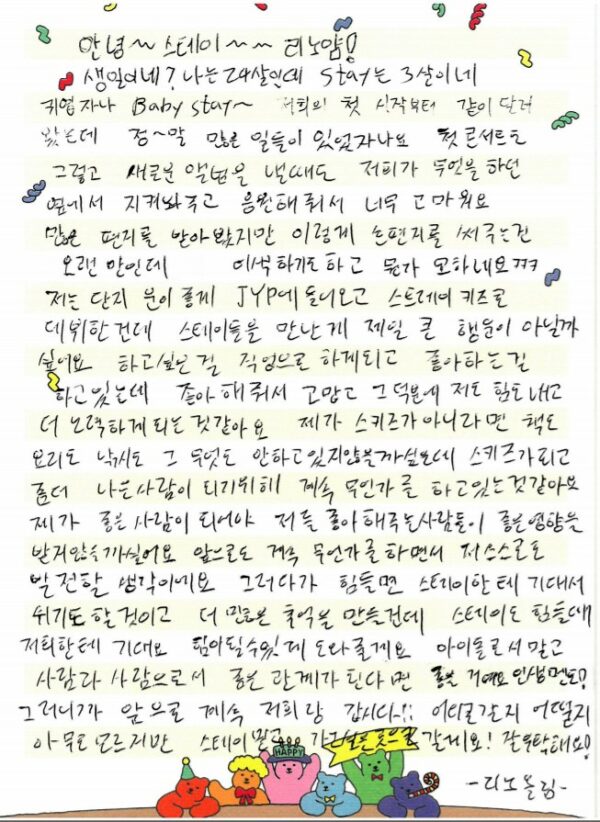 안녕~ 스테이~~ 리노얌!
생일이네? 나는 24살인데 Stay는 3살이네
귀엽자나 Baby stay~ 저희의 첫 시작부터 같이 달려
왔는데 정~말 많은 일들이 있었자나요 첫 콘서트도
그렇고 새로운 앨범을 낼때도 저희가 무엇을 하던
옆에서 지켜봐주고 응원해줘서 너무 고마워요
많은 편지를 받아봤지만 이렇게 손편지를 써주는건
오랜만인데 어색하기도 하고 뭔가 묘하네요ㅋㅋ
저는 단지 운이 좋게 JYP에 들어오고 스트레이 키즈로
데뷔한건데 스테이들을 만난게 제일 큰 행운이 아닐까
싶어요 하고싶은걸 직업으로 하게되고 좋아하는걸
하고있는데 좋아해줘서 고맙고 그 덕분에 저도 힘도 내고
더 노력하게 되는것같아요 제가 스키즈가 아니라면 책도
요리도 낚시도 그 무엇도 안하고있지않을까싶은데 스키즈가되고
좀더 나은사람이 되기위해 계속 무언가를 하고있는것같아요
제가 좋은 사람이 되어야 저를 좋아해주는사람들이 좋은영향을
받지않을까싶어요 앞으로도 계속 무언가를하면서 저스스로도
발전할 생각이에요 그러다가 힘들면 스테이한테 기대서
쉬기도 할것이고 더 많은 추억을 만들건데 스테이도 힘들때
저희한테 기대요 힘이될수있게 도와줄게요 아이돌로서 말고
사람과 사람으로서 좋은 관계가 된다면 좋을 거예요 인생멘토!
그러니까 앞으로 계속 저희랑 갑시다!! 어디로갈지 어떨지
아무도 모르지만 스테이 믿고 가고싶은곳으로 갈게요! 잘부탁해요!
-리노올림-
HAPPY